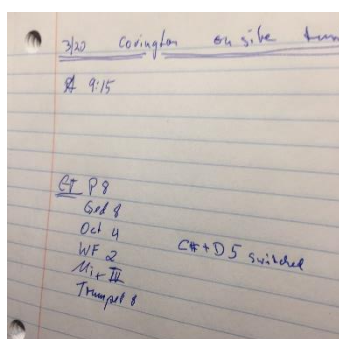 3/20 Covington on site
9:15
GT P 8
Ged 8
Oct 4
WF 2
Mix IV
Trumpet 8
C# + D 5 switched